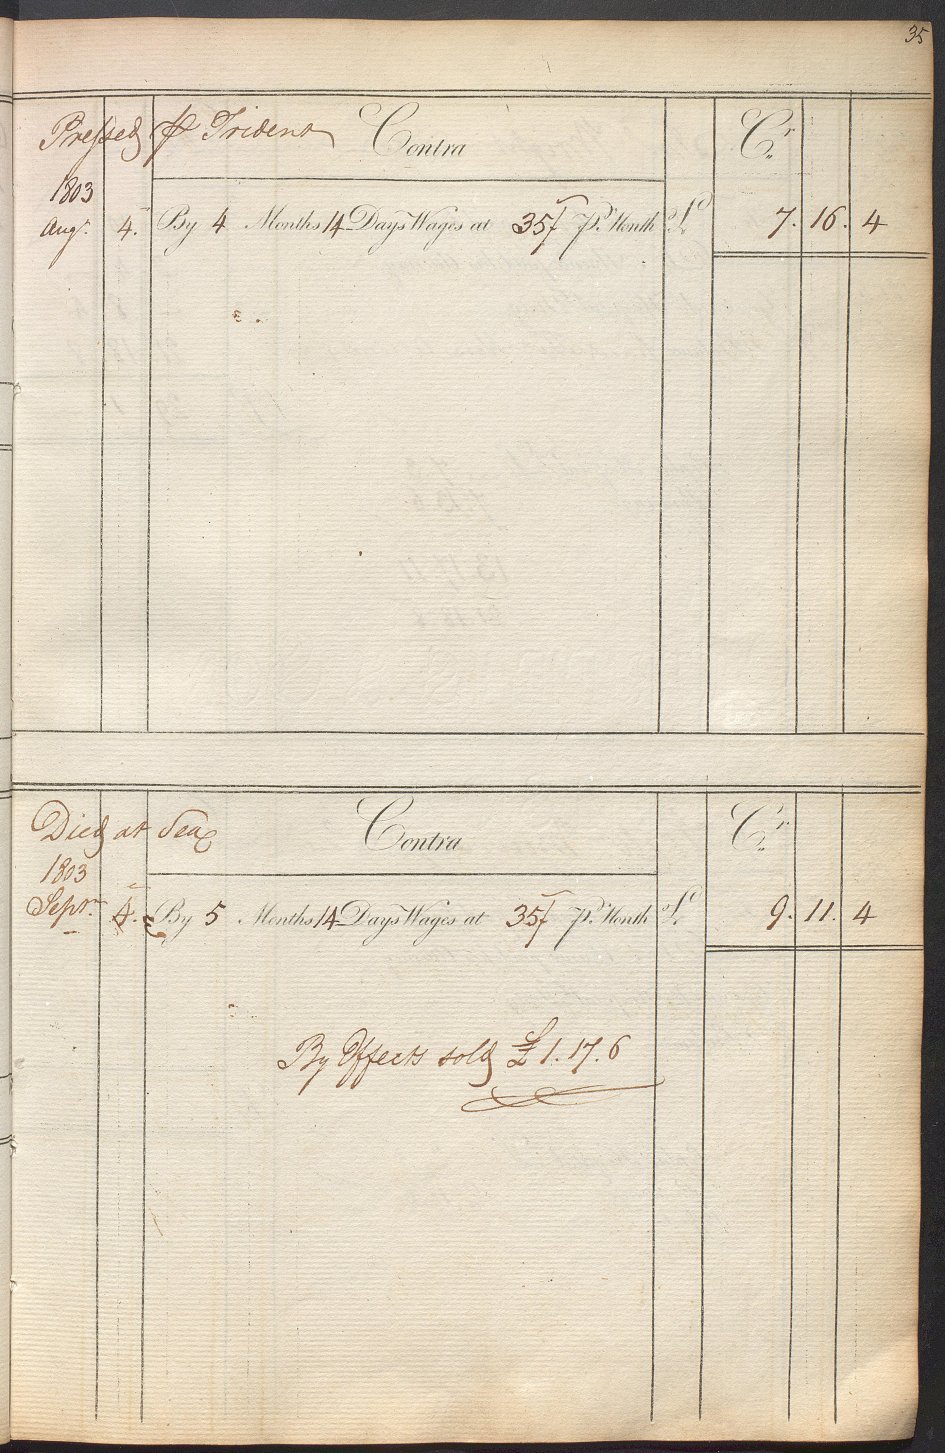 35
Pressed pr Trident Contra Cr
1803
Augt. 4. By 4 Months 14 Days Wages at 35/ pr. Month £ 7. 16. 4
Died at Sea Contra Cr
1803
Sepr. 4. By 5 Months 14 Days Wages at 35/ pr. Month £ 9. 11. 4
By Effects sold £ 1. 17. 6